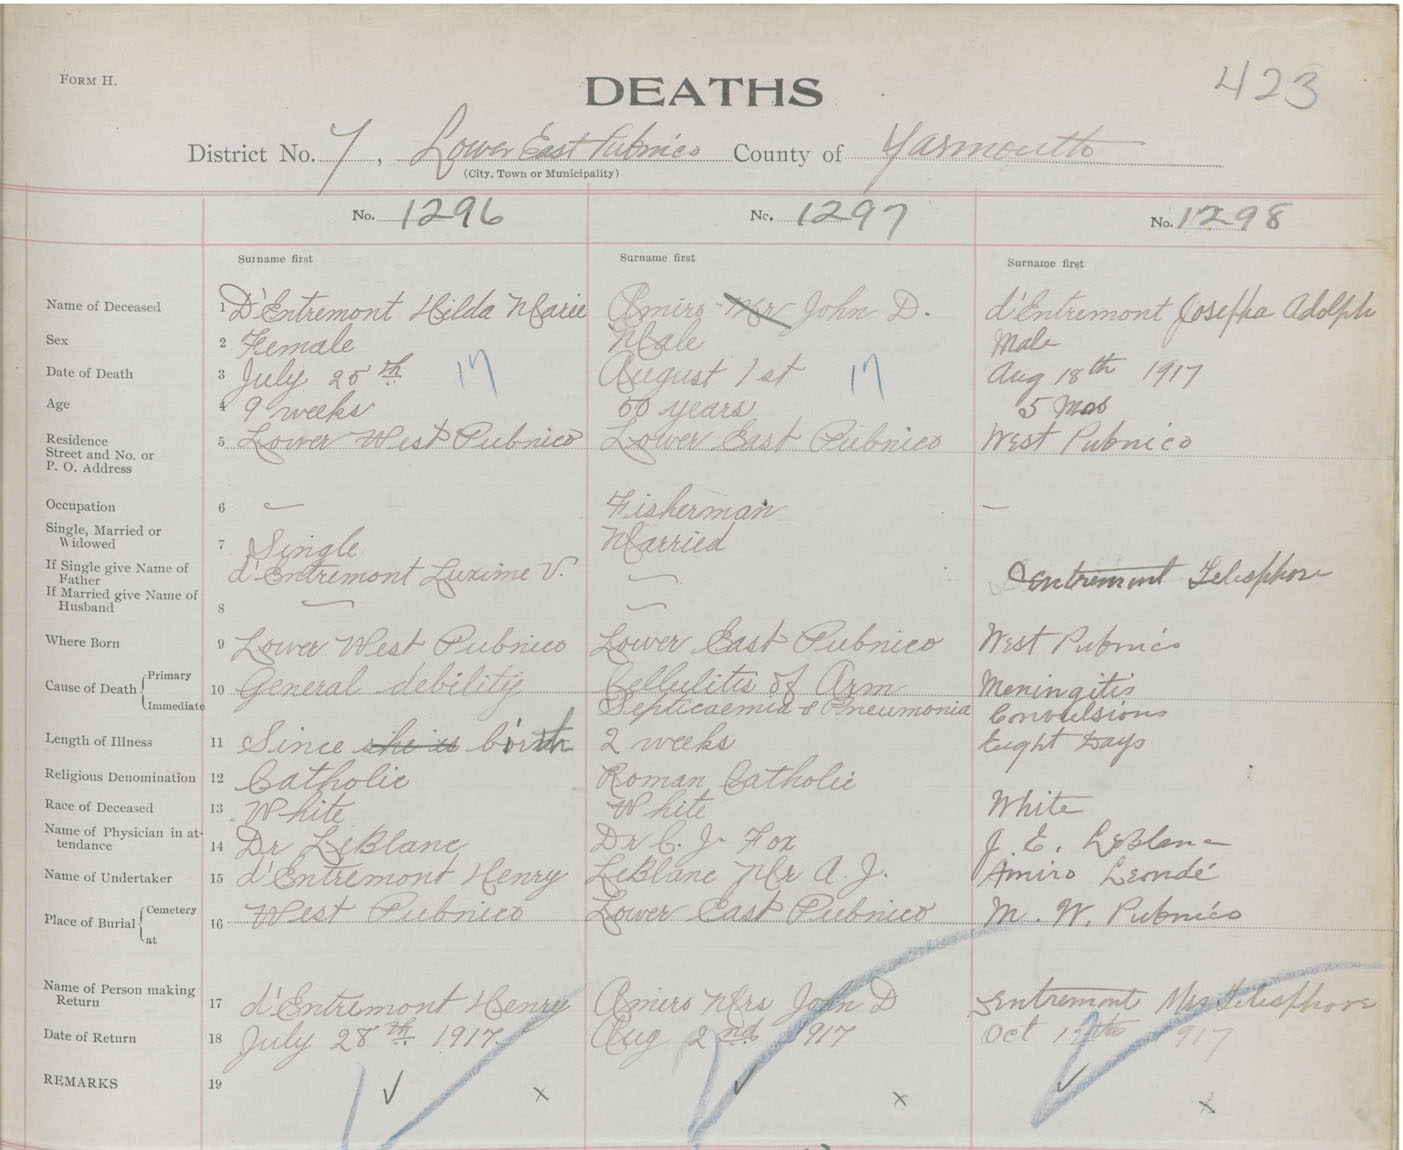 FORM H.
DEATHS
423
District No. 7, Lower East Pubnico County of Yarmouth
(City, Town or Municipality)
No. 1296 No. 1297 No. 1298
Surname first Surname first Surname first
Name of Deceased 1 D'Entremont Hilda Marie Amiro Mr John D. d'Entremont Josepha Adolph
Sex 2 Female Male Male
Date of Death 3 July 25th 17 August 1st 17 Aug 18th 1917
Age 4 9 weeks 50 years 5 Mos
Residence Street and No. or P. O. Address 5 Lower West Pubnico Lower East Pubnico West Pubnico
Occupation 6 — Fisherman —
Single, Married or Widowed 7 Single Married
If Single give Name of Father d'Entremont Luxime V. — Dentremont Telesphore
If Married give Name of Husband 8 — —
Where Born 9 Lower West Pubnico Lower East Pubnico West Pubnico
Cause of Death Primary 10 General debility Cellulitis of Arm Meningitis
Immediate Septicaemia & Pneumonia Convulsions
Length of Illness 11 Since she is birth 2 weeks Eught Days
Religious Denomination 12 Catholic Roman Catholic
Race of Deceased 13 White White White
Name of Physician in attendance 14 Dr LeBlanc Dr C. J. Fox J. E. LeBlanc
Name of Undertaker 15 d'Entremont Henry LeBlanc Mr A. J. Amiro Leondé
Place of Burial Cemetery at 16 West Pubnico Lower East Pubnico M. W. Pubnico
Name of Person making Return 17 d'Entremont Henry Amiro Mrs John D Dentremont Mrs Telesphore
Date of Return 18 July 28th 1917. Aug 2nd 1917 Oct 1917
REMARKS 19